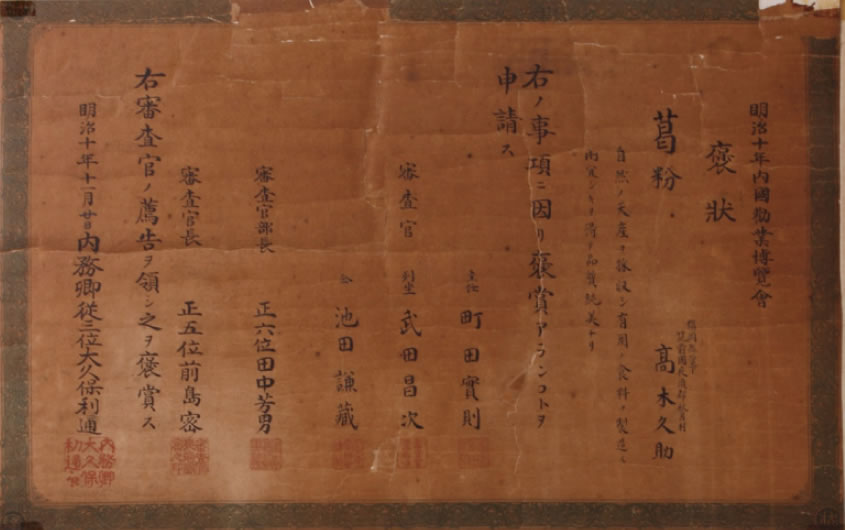 明治十年内國勸業博覽會
褒狀
葛粉
髙木久助
自然ノ天産ヲ採収シ有用ノ食料ヲ製造ス
品質純美ナリ
右ノ事項ニ因リ褒賞アランコトヲ
申請ス
主任 町田實則
審査官 武田昌次
仝 池田謙藏
審査官部長 正六位田中芳男
審査官長 正五位前島密
右審査官ノ薦告ヲ領シ之ヲ褒賞ス
明治十年十一月廿日内務卿從三位大久保利通
内務卿
大久保
利通